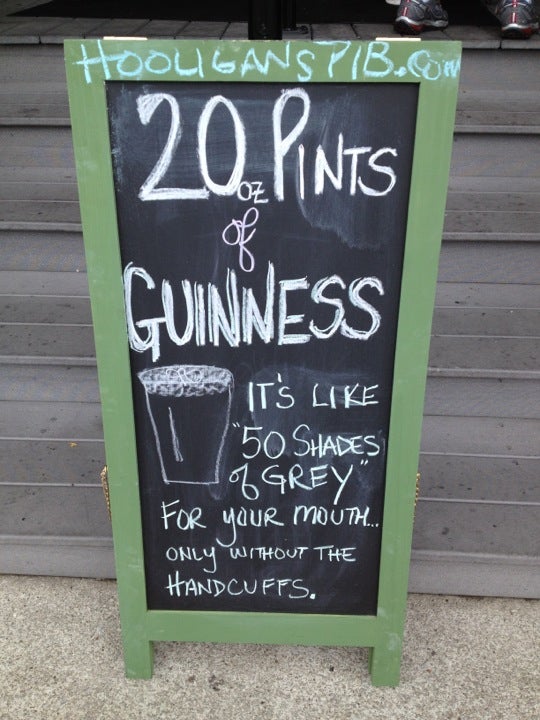 HOOLIGANSPIB.COM
20 oz PINTS
of
GUINNESS
IT'S LIKE
"50 SHADES
of GREY"
FOR YOUR MOUTH...
ONLY WITHOUT THE
HANDCUFFS.